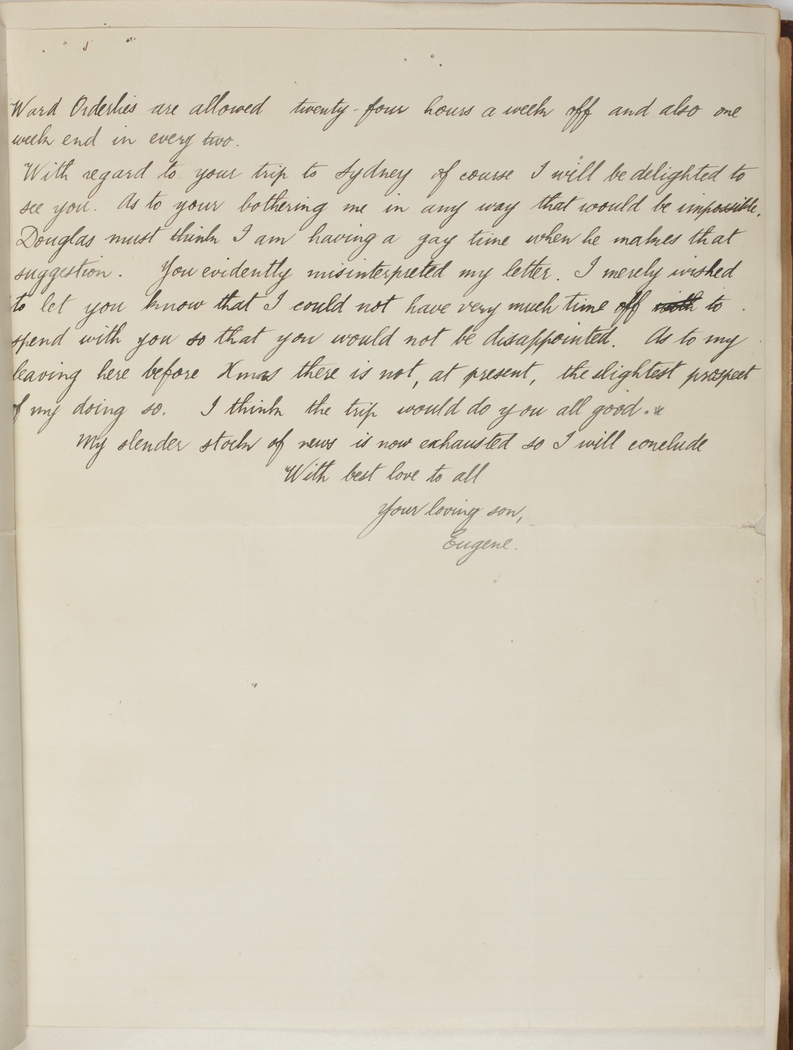 Ward Orderlies are allowed twenty-four hours a week off and also one
week end in every two.
With regard to your trip to Sydney of course I will be delighted to
see you. As to your bothering me in any way that would be impossible.
Douglas must think I am having a gay time when he makes that
suggestion. You evidently misinterpreted my letter. I merely wished
to let you know that I could not have very much time off with to
spend with you so that you would not be disappointed. As to my
leaving here before Xmas there is not, at present, the slightest prospect
of my doing so. I think the trip would do you all good.
My slender stock of news is now exhausted so I will conclude
With best love to all
Your loving son,
Eugene.